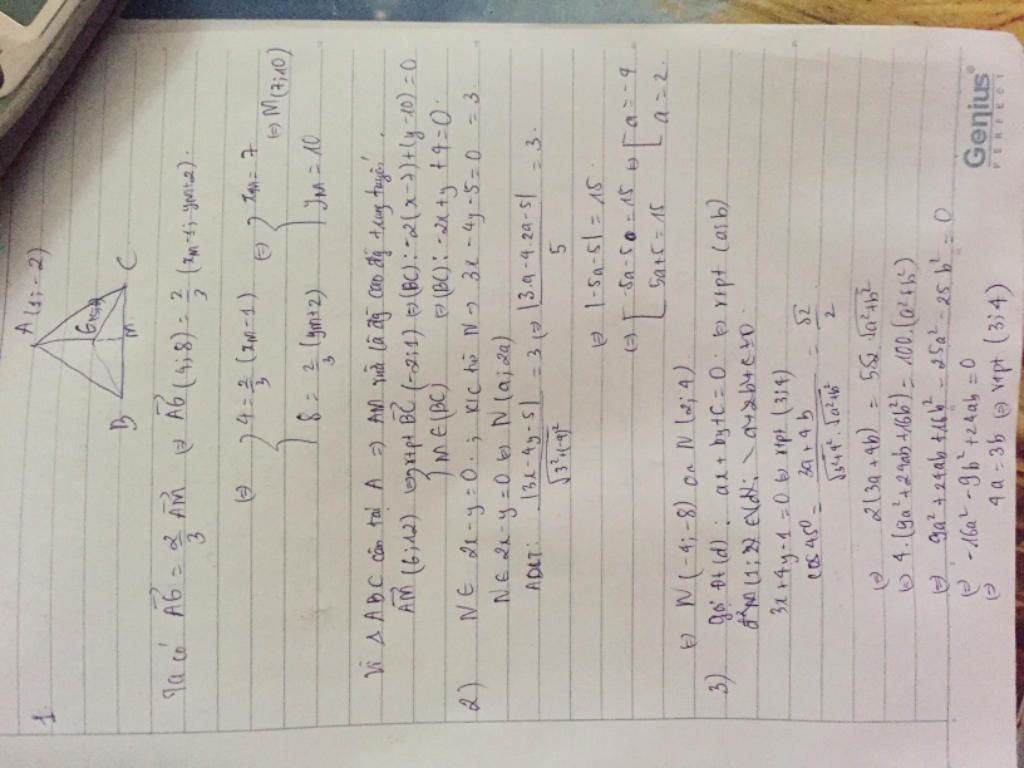 1
A(1;-2)
G(5;6)
B M C
Ta có AG = 2/3 AM ⇔ AG (4;8) = 2/3 (xM-1; yM+2).
⇔ { 4 = 2/3 (xM-1) ⇔ { xM = 7 ⇔ M(7;10)
8 = 2/3 (yM+2) yM = 10
Vì ΔABC cân tại A ⇒ AM vừa là đg cao đg trung tuyến
AM (6;12) vtpt BC (-2;1) ⇔ (BC): -2(x-7)+(y-10)=0
M ∈ (BC) ⇔ (BC): -2x+y+4=0.
2) N ∈ 2x-y=0; K/C từ N → 3x-4y-5=0 = 3
N ∈ 2x-y=0 ⇔ N(a;2a)
ADCT: |3x-4y-5| / √3²+(-4)² = 3 ⇔ |3.a-4.2a-5| / 5 = 3.
⇔ |-5a-5| = 15.
⇔ [ -5a-5 = 15 ⇔ [ a = -4
5a+5 = 15 a = 2.
⇔ N(-4;-8) or N(2;4)
3) gọi pt (d): ax+by+c=0. ⇔ vtpt (a;b)
M(1;2) ∈ (d): a+2b+c=0
3x+4y-1=0 ⇔ vtpt (3;4)
cos 45° = 3a+4b / √3²+4².√a²+b² = √2 / 2
⇔ 2(3a+4b) = 5√2.√a²+b²
⇔ 4.(9a²+24ab+16b²) = 100.(a²+b²)
⇔ 9a²+24ab+16b²-25a²-25b²=0
⇔ -16a²-9b²+24ab=0
⇔ 4a=3b ⇔ vtpt (3;4)
Genius
PERFECT